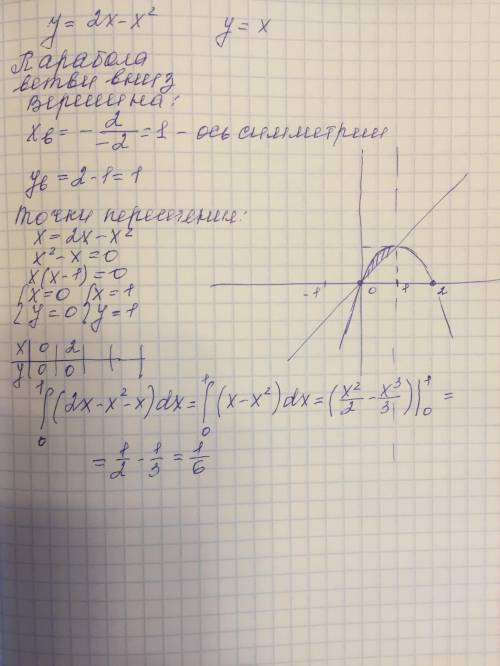 y = 2x - x²    y = x
Парабола
ветви вниз
Вершина:
xв = - 2/-2 = 1 - ось симметрии
yв = 2 - 1 = 1
Точки пересечения:
x = 2x - x²
x² - x = 0
x(x-1) = 0
{x = 0 {x = 1
{y = 0 {y = 1
x | 0 | 2
y | 0 | 0
-1 0 1 2
∫₀¹(2x - x² - x)dx = ∫₀¹(x - x²)dx = (x²/2 - x³/3)|₀¹ =
= 1/2 - 1/3 = 1/6